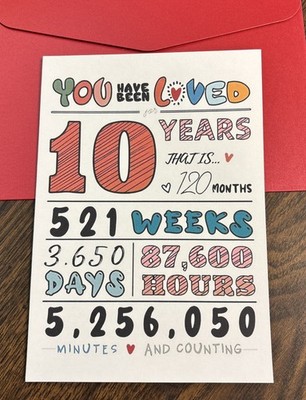 YOU HAVE BEEN LOVED
for
10 YEARS
THAT IS...
120 MONTHS
521 WEEKS
3.650 DAYS
87,600 HOURS
5,256,050
MINUTES AND COUNTING